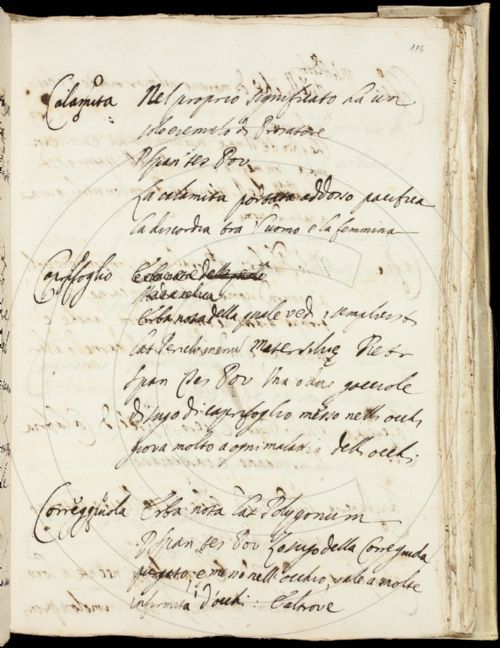 116
Calamita Nel proprio significato ha un
solo esempio di Prosatore
Pspan tes Pov
La calamita portata addosso pacifica
la discordia tra l'uomo e la femmina
Caprifoglio
Erba nota della quale vedi
lat Periclimenu Matersilvę Pietr
Span tes Pov Una o due gocciole
di sugo di caprifoglio messo nelli occhi
giova molto a ogni malatia delli occhi.
Correggiuola Erba nota lat Polygonum
Pspan tes Pov Lo sugo della Coreguola
purgato, e messo nell'occhio, vale a molte
infirmità d'occhi: e altrove